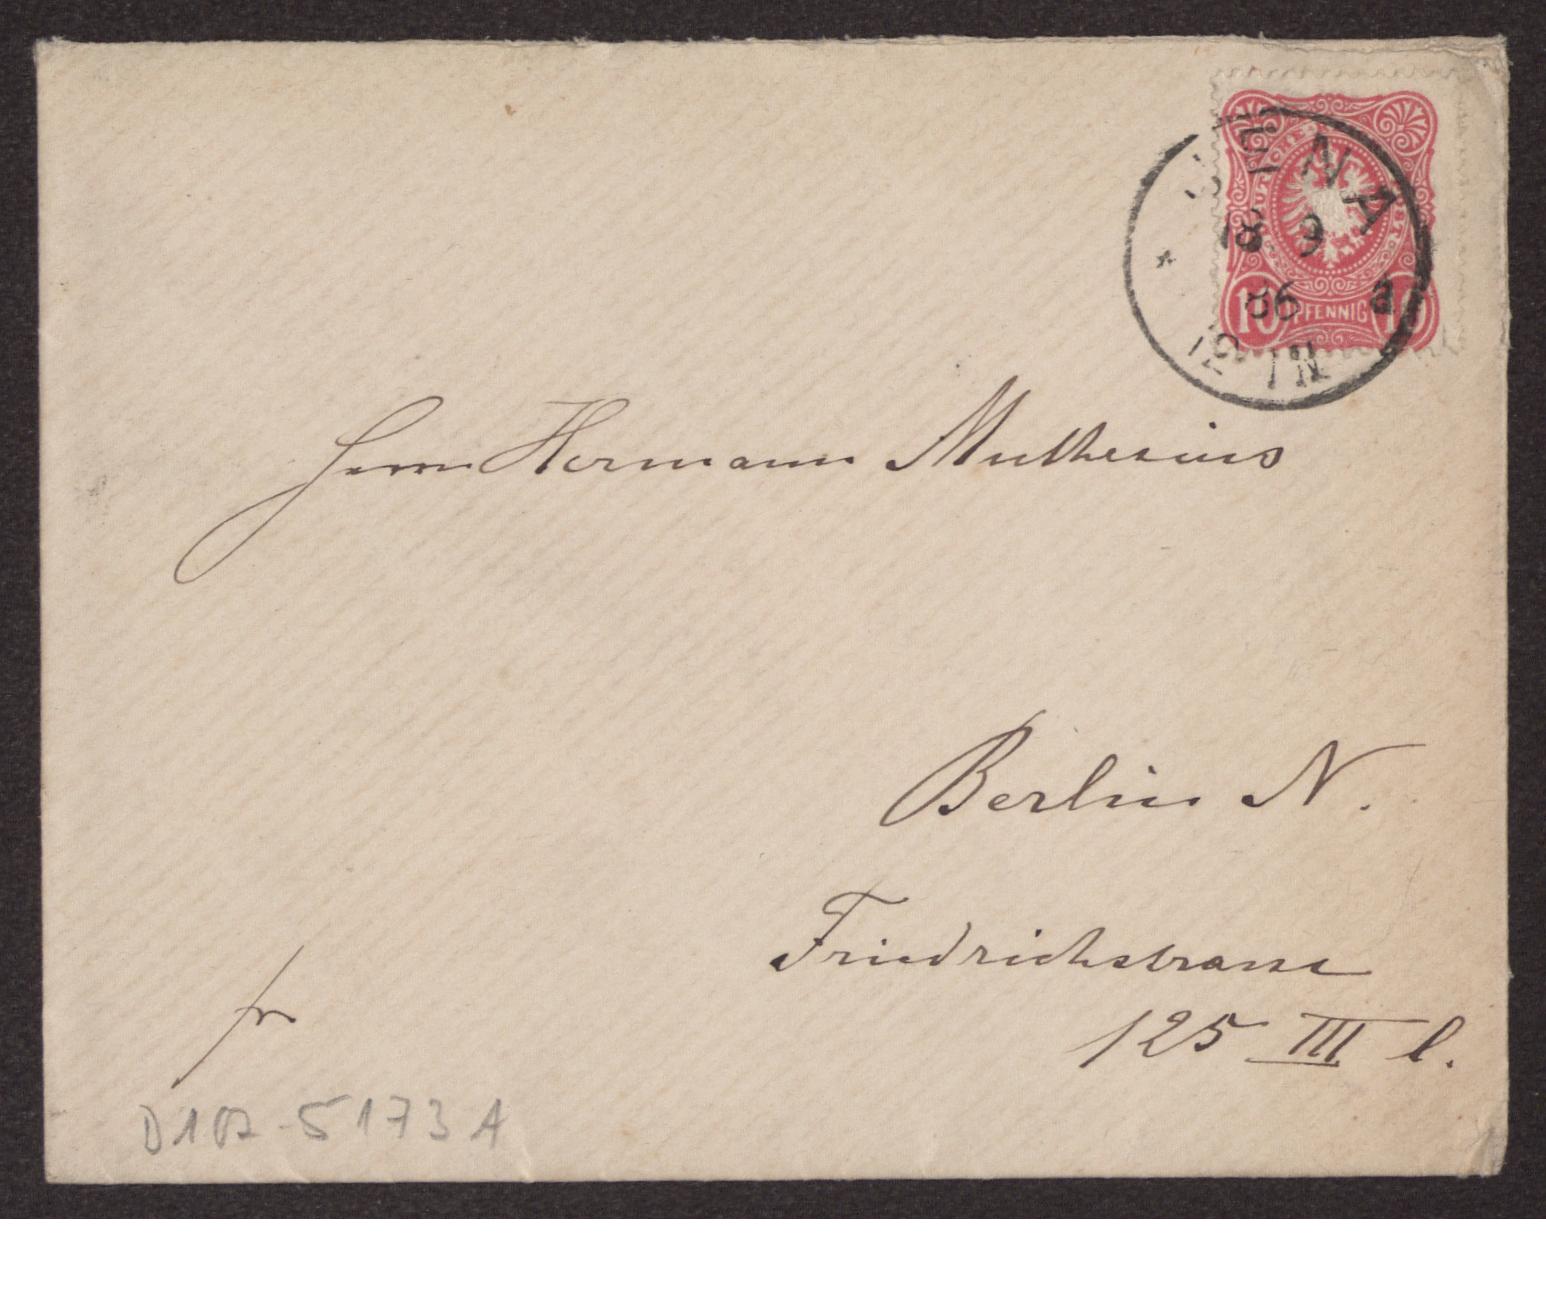 JENA
18 9
86 a
10 PFENNIG 10
Herrn Hermann Muthesius
Berlin N.
Friedrichstrasse
125 III l.
fr
D102-5173A